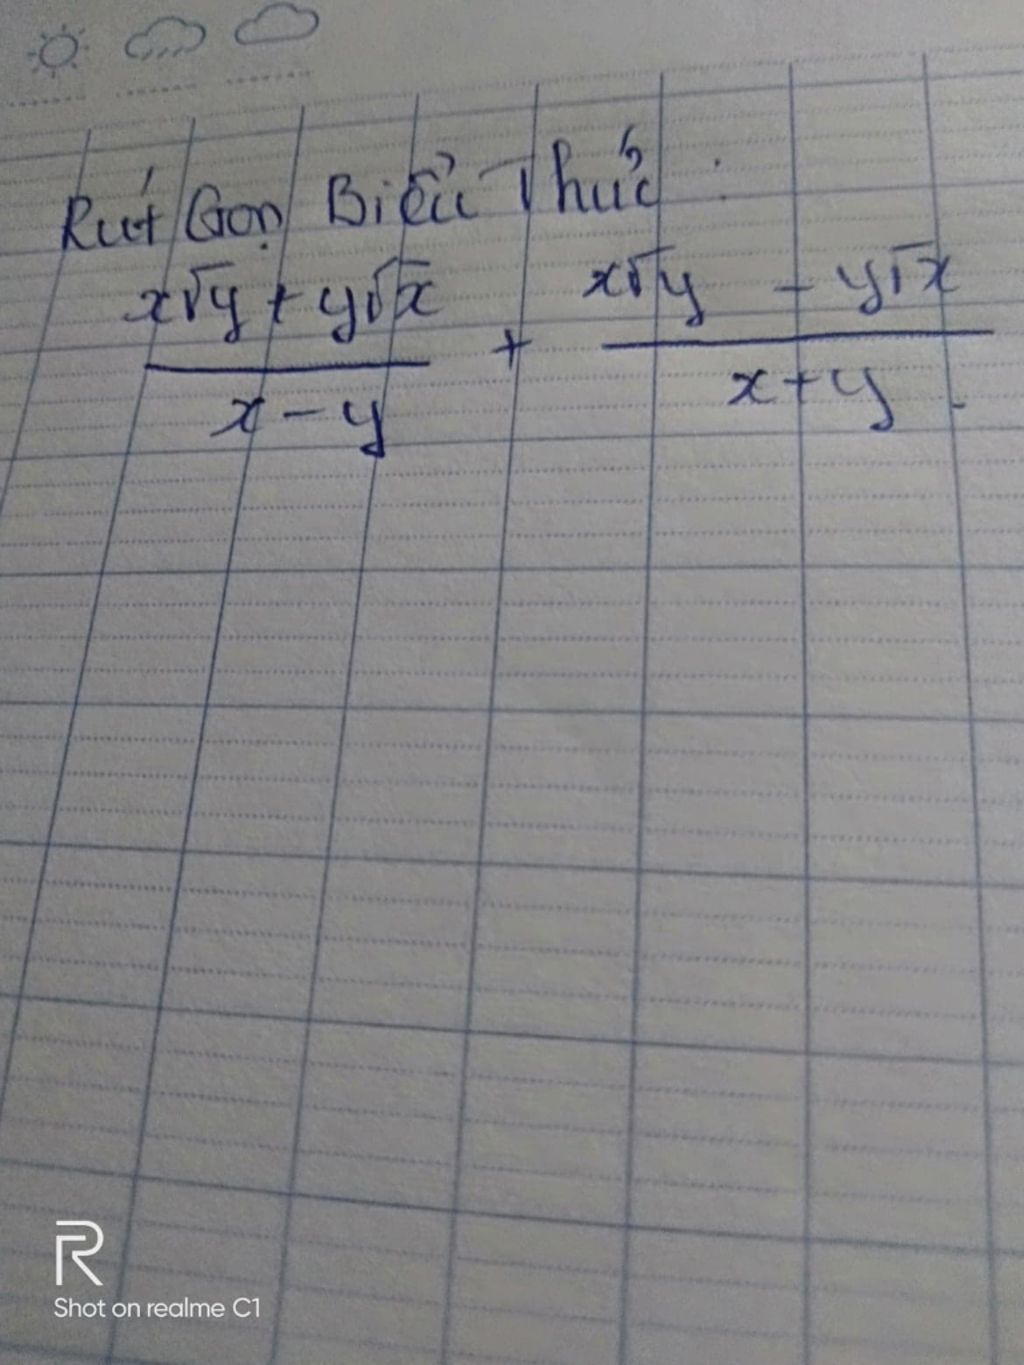 Rút Gọn Biểu Thức :
x√y + y√x / x - y + x√y - y√x / x + y .
R
Shot on realme C1